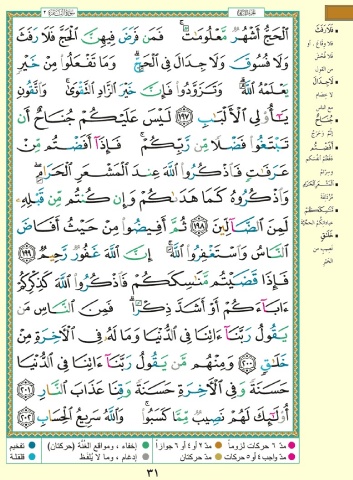 ٱلْحَجُّ أَشْهُرٌ مَّعْلُومَٰتٌ ۚ فَمَن فَرَضَ فِيهِنَّ ٱلْحَجَّ فَلَا رَفَثَ
وَلَا فُسُوقَ وَلَا جِدَالَ فِى ٱلْحَجِّ ۗ وَمَا تَفْعَلُوا۟ مِنْ خَيْرٍ
يَعْلَمْهُ ٱللَّهُ ۗ وَتَزَوَّدُوا۟ فَإِنَّ خَيْرَ ٱلزَّادِ ٱلتَّقْوَىٰ ۚ وَٱتَّقُونِ
يَٰٓأُو۟لِى ٱلْأَلْبَٰبِ ١٩٧ لَيْسَ عَلَيْكُمْ جُنَاحٌ أَن
تَبْتَغُوا۟ فَضْلًا مِّن رَّبِّكُمْ ۚ فَإِذَآ أَفَضْتُم مِّنْ
عَرَفَٰتٍ فَٱذْكُرُوا۟ ٱللَّهَ عِندَ ٱلْمَشْعَرِ ٱلْحَرَامِ ۖ
وَٱذْكُرُوهُ كَمَا هَدَىٰكُمْ وَإِن كُنتُم مِّن قَبْلِهِۦ
لَمِنَ ٱلضَّآلِّينَ ١٩٨ ثُمَّ أَفِيضُوا۟ مِنْ حَيْثُ أَفَاضَ
ٱلنَّاسُ وَٱسْتَغْفِرُوا۟ ٱللَّهَ ۚ إِنَّ ٱللَّهَ غَفُورٌ رَّحِيمٌ ١٩٩
فَإِذَا قَضَيْتُم مَّنَٰسِكَكُمْ فَٱذْكُرُوا۟ ٱللَّهَ كَذِكْرِكُمْ
ءَابَآءَكُمْ أَوْ أَشَدَّ ذِكْرًا ۗ فَمِنَ ٱلنَّاسِ مَن
يَقُولُ رَبَّنَآ ءَاتِنَا فِى ٱلدُّنْيَا وَمَا لَهُۥ فِى ٱلْءَاخِرَةِ مِنْ
خَلَٰقٍ ٢٠٠ وَمِنْهُم مَّن يَقُولُ رَبَّنَآ ءَاتِنَا فِى ٱلدُّنْيَا
حَسَنَةً وَفِى ٱلْءَاخِرَةِ حَسَنَةً وَقِنَا عَذَابَ ٱلنَّارِ ٢٠١
أُو۟لَٰٓئِكَ لَهُمْ نَصِيبٌ مِّمَّا كَسَبُوا۟ ۚ وَٱللَّهُ سَرِيعُ ٱلْحِسَابِ ٢٠٢
فَلَا رَفَثَ
لَا جِدَالَ
جُنَاحٌ
أَفَضْتُم
مَّنَٰسِكَكُمْ
خَلَٰقٍ
مدّ ٦ حركات لزوماً مدّ ٢ أو ٤ أو ٦ جوازاً إخفاء، ومواقع الغُنَّة (حركتان) تفخيم
مدّ واجب ٤ أو ٥ حركات مدّ حركتان إدغام، وما لا يُلفَظ قلقلة
٣١